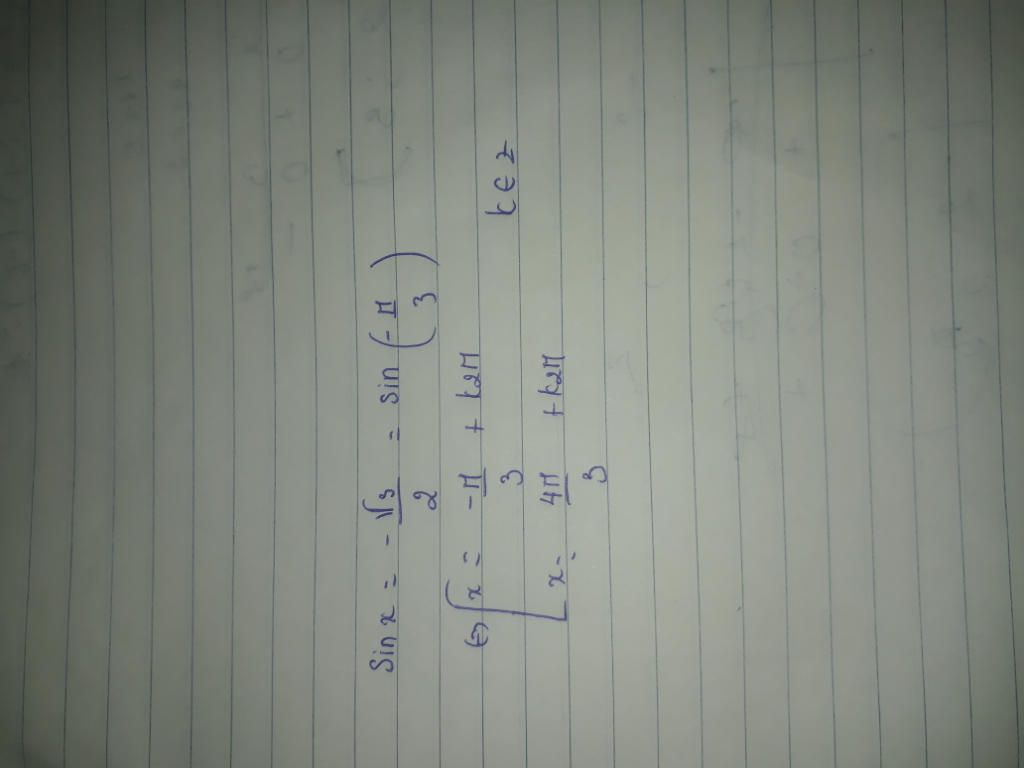 Sin x = - √3/2 = sin (- π/3)
⇔ [ x = - π/3 + k2π k ∈ z
x = 4π/3 + k2π